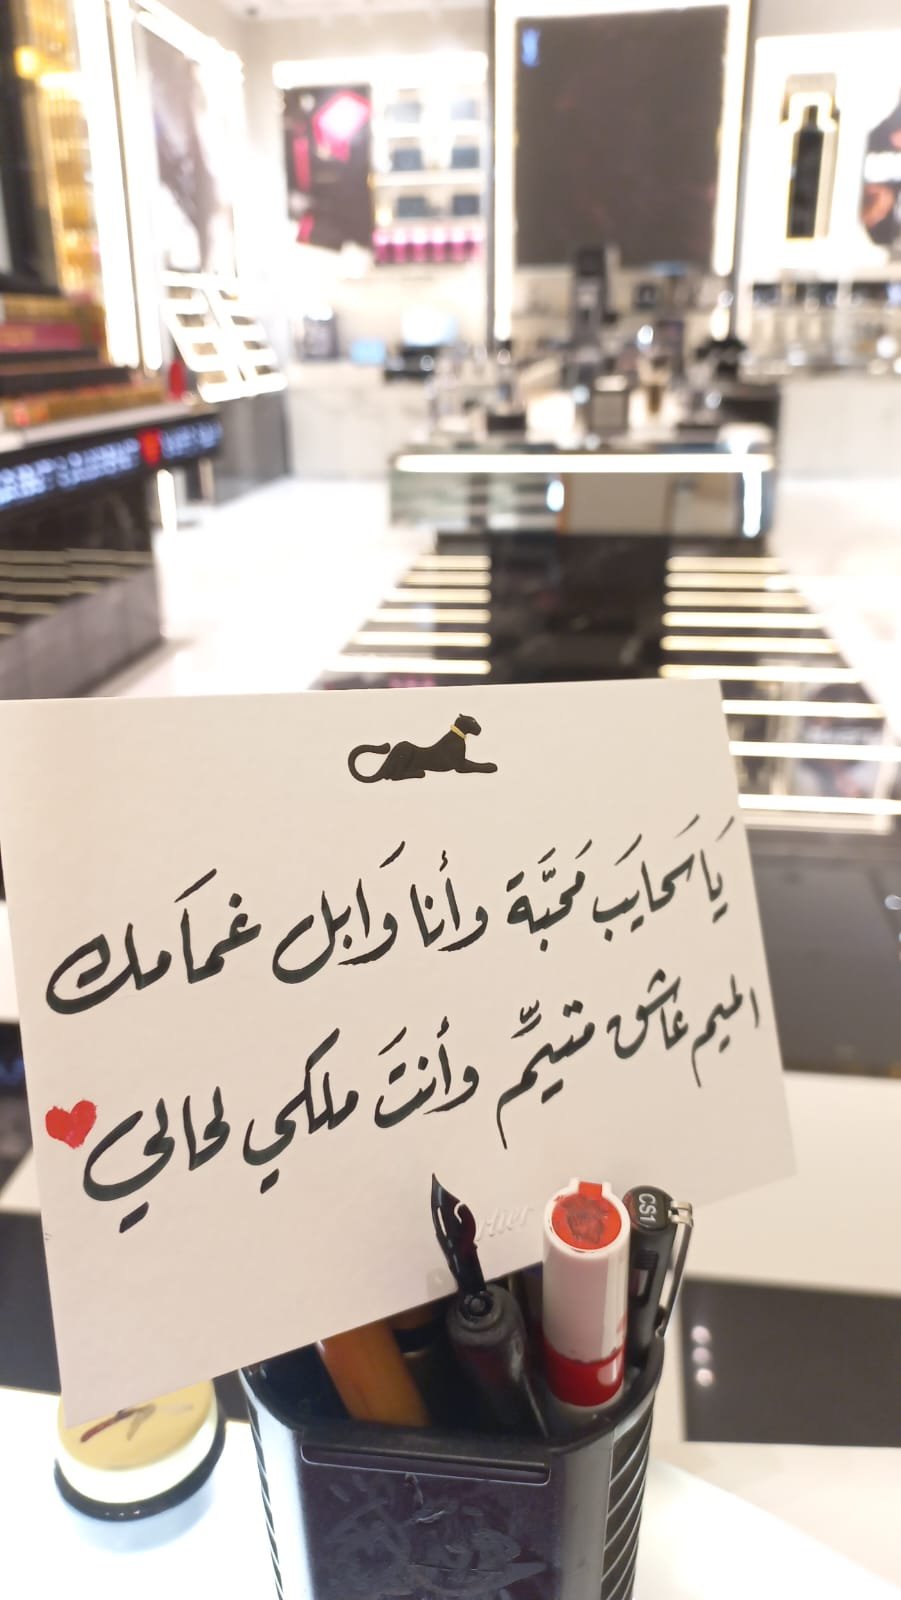 يَا سَحايَب مَحَبَّة وأنا وَابل غمَامك
الميم عَاشق متيّم وأنتَ ملكي لحالي
rtier
CS1